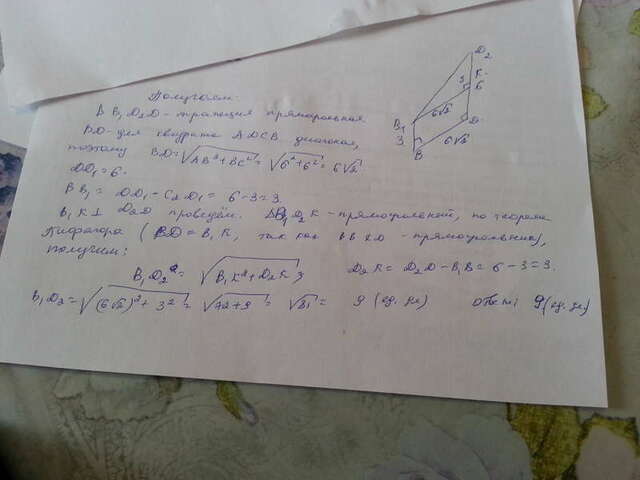 Получаем:
BB₁D₂D - трапеция прямоугольная
BD - для квадрата ADCB диагональ,
поэтому BD = √(AB² + BC²) = √(6² + 6²) = 6√2
DD₁ = 6.
BB₁ = DD₁ - C₂D₁ = 6 - 3 = 3
B₁K ⊥ D₂D проведём. ΔB₁D₂K - прямоугольный, по теореме
Пифагора (BD = B₁K, так как - прямоугольник),
получим:
B₁D₂ = √(B₁K² + D₂K²) D₂K = D₂D - B₁B = 6 - 3 = 3.
B₁D₂ = √((6√2)² + 3²) = √(72 + 9) = √81 = 9 (ед. ) ответ: 9 (ед. )
D₂
3 K
6
B₁ 6√2
3 D
6√2
B